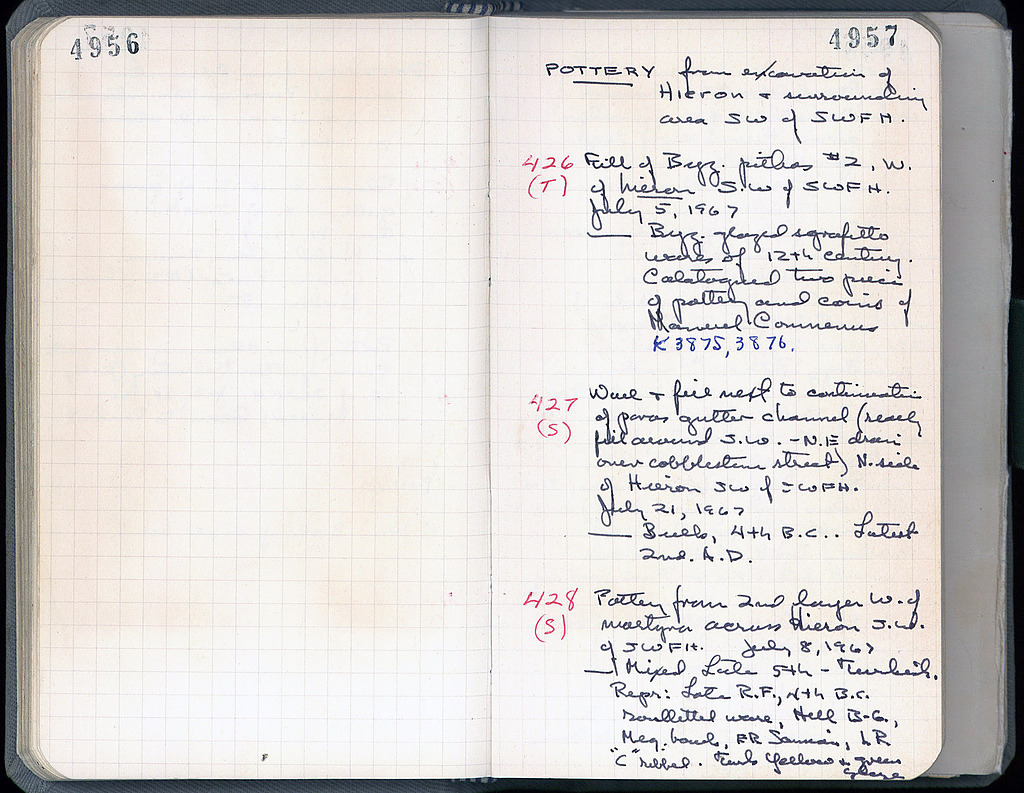 4956
4957
POTTERY from excavation of
Hieron + surrounding
area SW of SWFH.
426 Fill of Byz. pithos #2, W.
(T) of Hieron S.W of SWFH.
July 5, 1967
— Byz. glazed sgrafitto
wares of 12th century.
Catalogued two pieces
of pottery and coins of
Manuel Comnenus
K 3875, 3876.
427 Wall + fill next to continuation
of poros gutter channel (really
(S) fill around S.W. - N.E drain
over cobblestone street) N. side
of Hieron SW of SWFH.
July 21, 1967
— Bulk, 4th B.C.. Latest
2nd. A.D.
428 Pottery from 2nd layer W. of
(S) martyra across Hieron S.W.
of SWFH. July 8, 1967
— Mixed Late 5th - Turkish.
Repr: Late R.F., 4th B.C.
roulletted ware, Hell B-G.,
Meg. bowls, ER Samian, LR
"C" ribbed. Turk Yellow + green
glaze